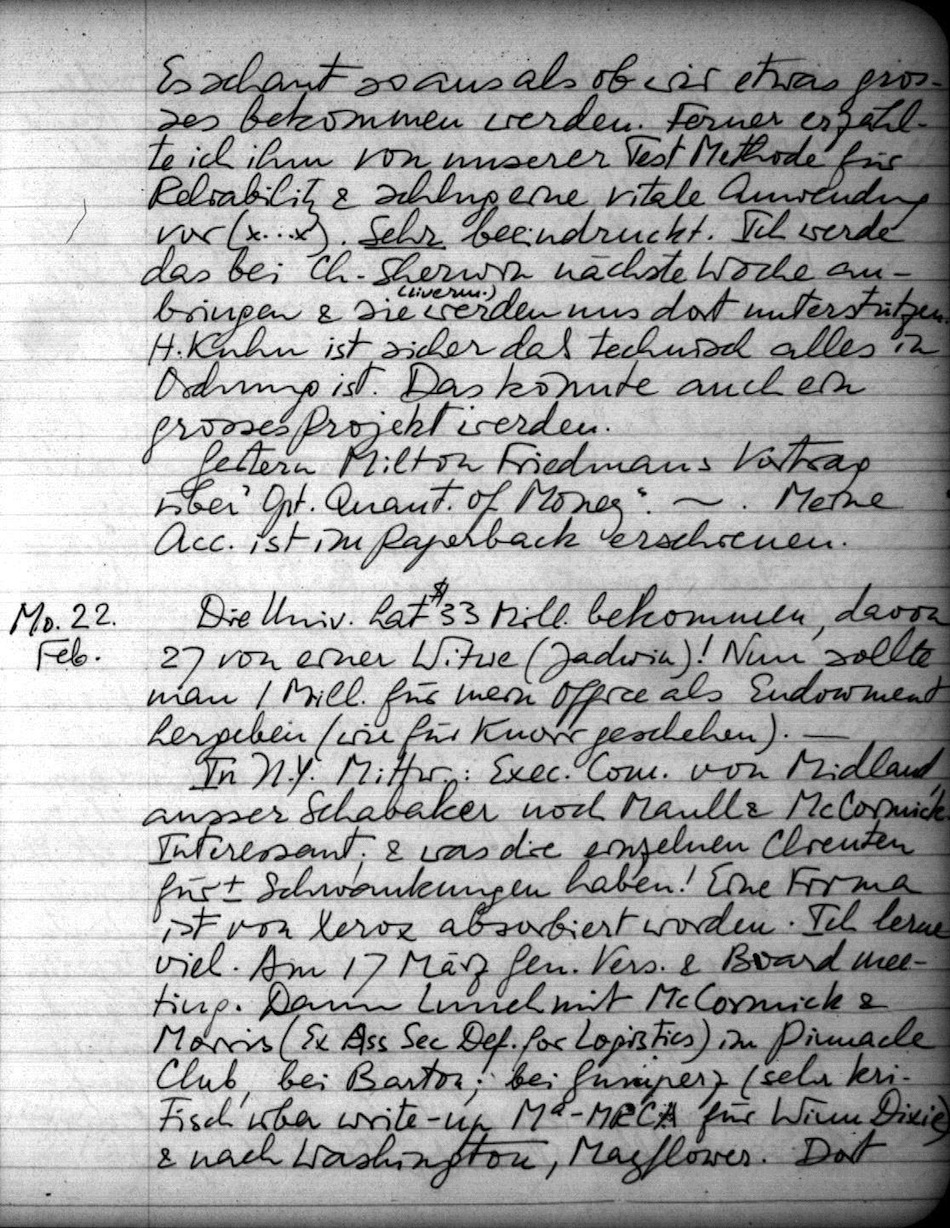 Es schaut so aus als ob wir etwas gros-
ses bekommen werden. Ferner erzähl-
te ich ihm von unserer Test Methode für
Reliability & schlug eine vitale Anwendung
vor (x...x). Sehr beeindruckt. Ich werde
das bei Ch. Sherwin nächste Woche an-
(Liverm.)
bringen & sie werden uns dort unterstützen.
H. Kuhn ist sicher daß technisch alles in
Ordnung ist. Das könnte auch ein
grosses Projekt werden.
Gestern Milton Friedmans Vortrag
über "Opt. Quant. of Money". ~ . Meine
Acc. ist im Paperback erschienen.
Mo. 22. Feb.
Die Univ. hat $33 Mill. bekommen, davon
27 von einer Witwe (Jadwin)! Nun sollte
man 1 Mill. für mein Office als Endowment
hergeben (wie für Knorr geschehen). —
In N.Y. Mittw.: Exec. Com. von Midland,
ausser Schabaker noch Maull & McCormick.
Interessant, & was die einzelnen Clienten
für ± Schwankungen haben! Eine Firma
ist von Xerox absorbiert worden. Ich lerne
viel. Am 17 März Gen. Vers. & Board mee-
ting. Dann Lunch mit McCormick &
Morris (Ex Ass Sec Def. for Logistics) im Pinnacle
Club, bei Barton; bei Gumperz (sehr kri-
tisch über write-up Ma-MRCA für Winn Dixie)
& nach Washington, Mayflower. Dort